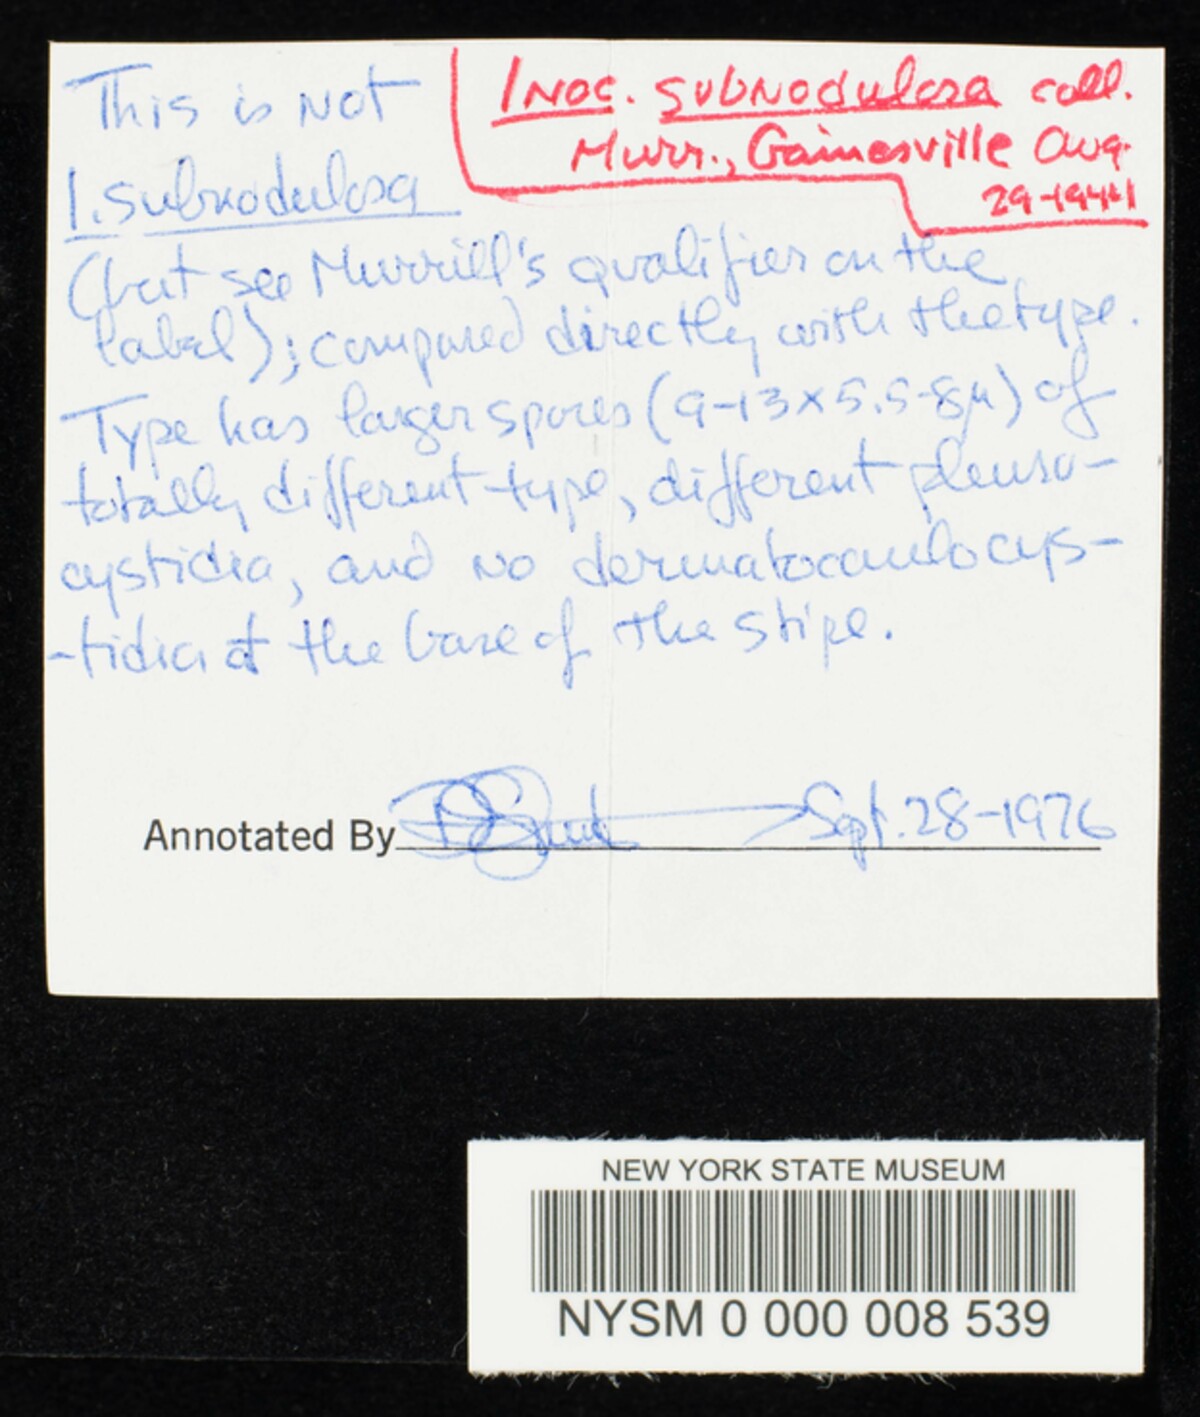 Inoc. subnodulosa coll.
Murr., Gainesville Aug.
29-1941
This is not
I. subnodulosa
(but see Murrill's qualifier on the
label); compared directly with the type.
Type has larger spores (9-13x5.5-8µ) of
totally different type, different pleuro-
cystidia, and no dermatocaulocys-
-tidia at the base of the stipe.
Annotated By Sept. 28-1976
NEW YORK STATE MUSEUM
NYSM 0 000 008 539